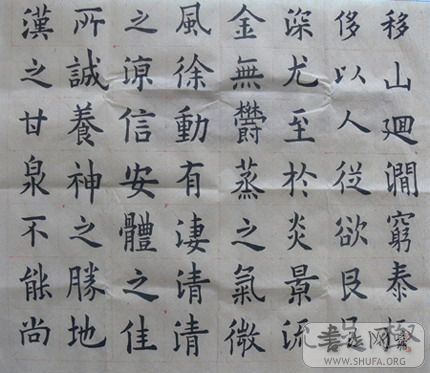 移山迴澗窮泰極
侈以人從欲良
深尤至於炎景流
金無欝蒸之氣微
風徐動有淒清清
之涼信安體之佳
所誠養神之勝地
漢之甘泉不能尚
WWW.SHUFA.ORG